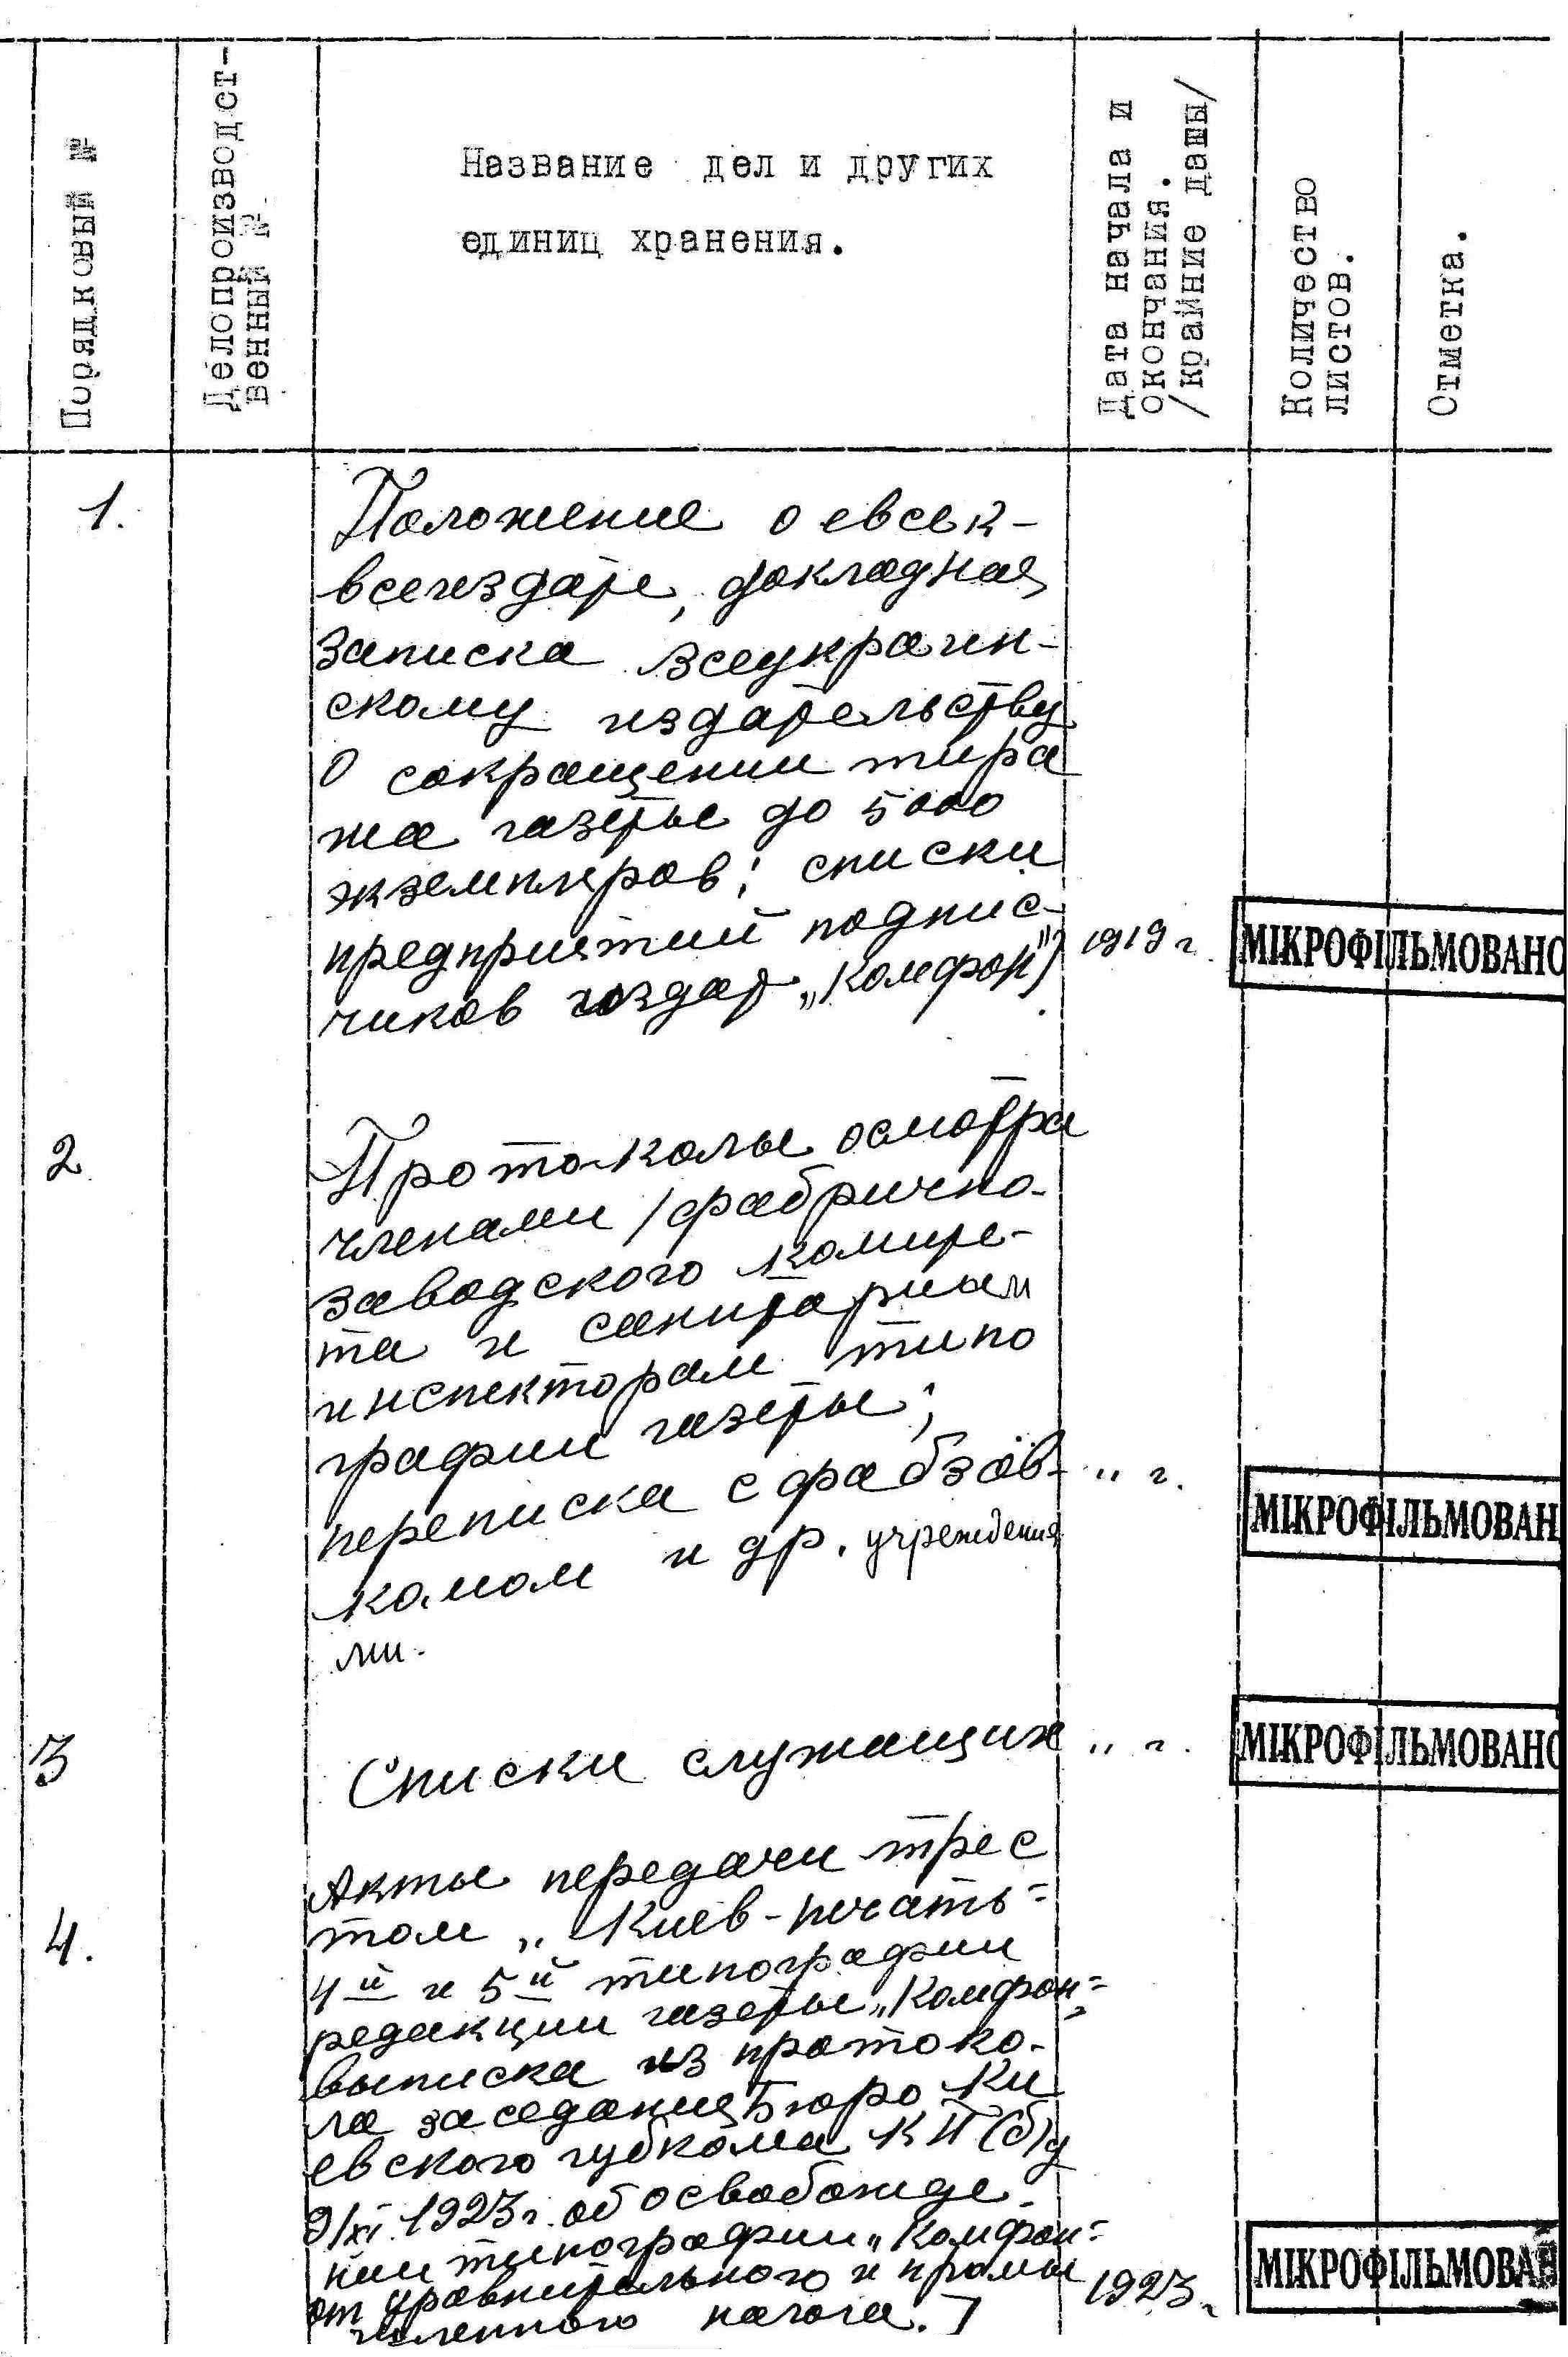 Порядковый №
Делопроизводст-
венный №
Название дел и других
единиц хранения.
Дата начала и
окончания.
/крайние даты/
Количество
листов.
Отметка.
1.
Положение о евсек-
всеиздате, докладная
записка всеукраин-
скому издательству
о сокращении тира
жа газеты до 5000
экземпляров; списки
предприятий подпис-
чиков издат „Комфон"
1919 г.
МІКРОФІЛЬМОВАНО
2.
Протоколы осмотра
членами /фабрично-
заводского комите-
та и санитарным
инспектором типо
графии газеты;
переписка с фабзав-
комом и др. учреждения
ми.
" г.
МІКРОФІЛЬМОВАН
3
Списки служащих
" г.
МІКРОФІЛЬМОВАНО
4.
Акты передачи трес
том „Киев-печать"
4й и 5й типографии
редакции газеты „Комфон"
выписка из протоко-
ла заседания Бюро Ки
евского губкома КП(б)у
9/XI 1923г. об освобожде-
нии типографии „Комфон"
от уравнительного и промы
шленного налога.
1923г.
МІКРОФІЛЬМОВАН